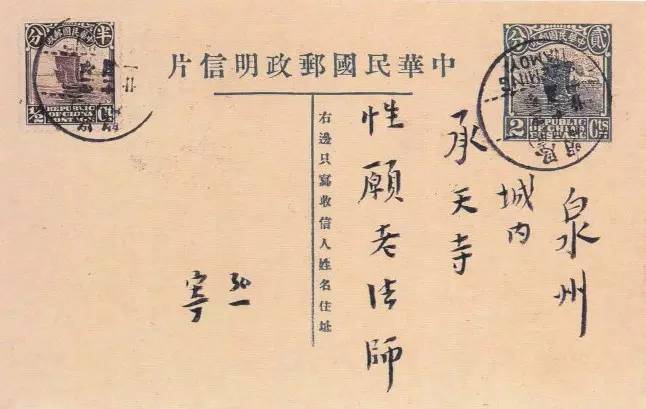 中華民國郵政明信片
貳
中華民國郵政
分
2
REPUBLIC
OF CHINA
POSTAGE
Cts
MING
(AMOY)
半
中華民國郵政
分
1/2
REPUBLIC
OF CHINA
POSTAGE
Ct.
泉州
城内
承天寺
性願老法師
右邊只寫收信人姓名住址
弘一
寄